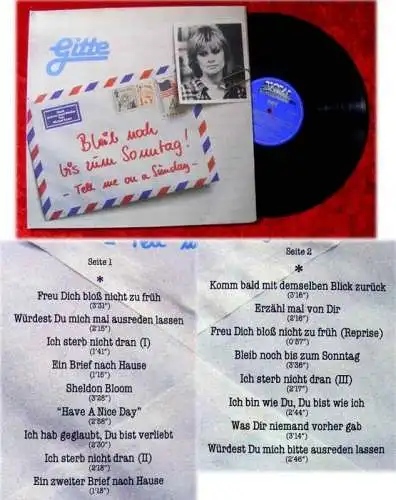 Gitte
Bleib noch
bis zum Sonntag!
- Tell me on a Sunday -
Seite 1
*
Freu Dich bloß nicht zu früh
(3'31")
Würdest Du mich mal ausreden lassen
(2'15")
Ich sterb nicht dran (I)
(1'41")
Ein Brief nach Hause
(1'15")
Sheldon Bloom
(3'28")
"Have A Nice Day"
(2'38")
Ich hab geglaubt, Du bist verliebt
(2'30")
Ich sterb nicht dran (II)
(2'18")
Ein zweiter Brief nach Hause
(1'15")
Seite 2
*
Komm bald mit demselben Blick zurück
(3'16")
Erzähl mal von Dir
(2'16")
Freu Dich bloß nicht zu früh (Reprise)
(0'57")
Bleib noch bis zum Sonntag
(3'36")
Ich sterb nicht dran (III)
(2'17")
Ich bin wie Du, Du bist wie ich
(2'44")
Was Dir niemand vorher gab
(3'14")
Würdest Du mich bitte ausreden lassen
(2'46")